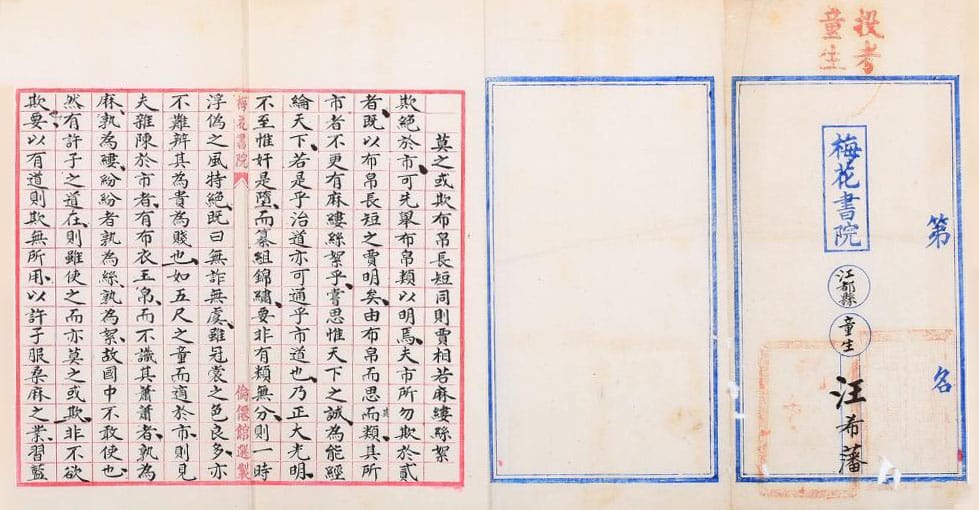 投考
童生
第 名
梅花書院
江都縣
童生
汪希藩
莫之或欺布帛長短同則賈相若麻縷絲絮
欺絕於市可先舉布帛類以明焉夫市所勿欺於貳
者既以布帛長短之賈明矣由布帛而思而其類其所
市者不更有麻縷絲絮乎嘗思惟天下之誠為能經
綸天下若是乎治道亦可通乎市道也乃正大光明
不至惟奸是墮而纂組錦繡要非有類無分則一時
梅花書院 倫僊館選製
浮偽之風特絕既曰無詐無虞雖冠裳之色良多亦
不難辨其為貴為賤也如五尺之童而適於市則見
夫雜陳於市者有布衣玉帛而不識其蕭蕭者孰為
麻孰為縷紛紛者孰為絲孰為絮故國中不敢使也
然有許子之道在則雖使之而亦莫之或欺非不欲
欺要以有道則欺無所用以許子服桑麻之業習藍